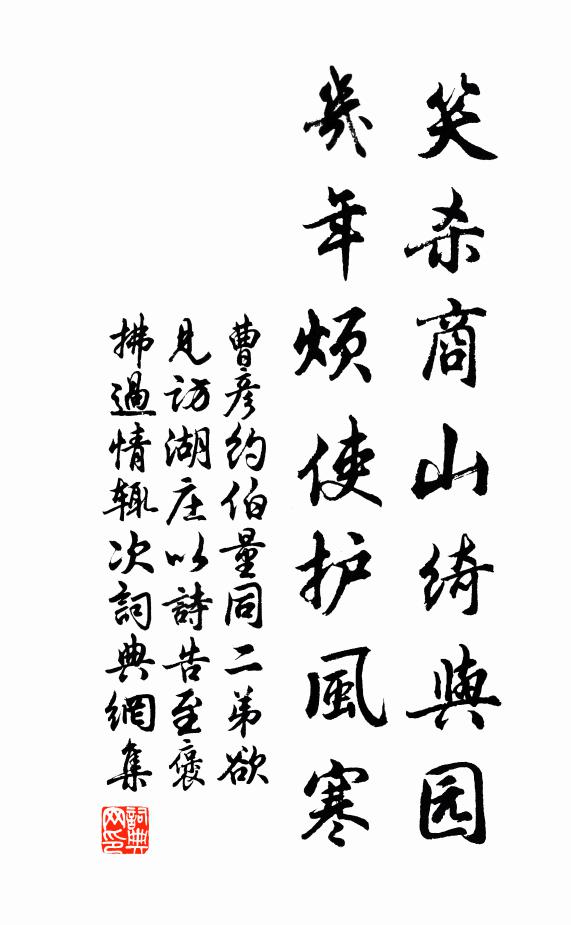 笑杀商山绮與园
幾年烦使护風寒
曹彦约伯量同二弟欲
見访湖庄以詩告至褒
拂過情辄次詞典網集
詞典
网印